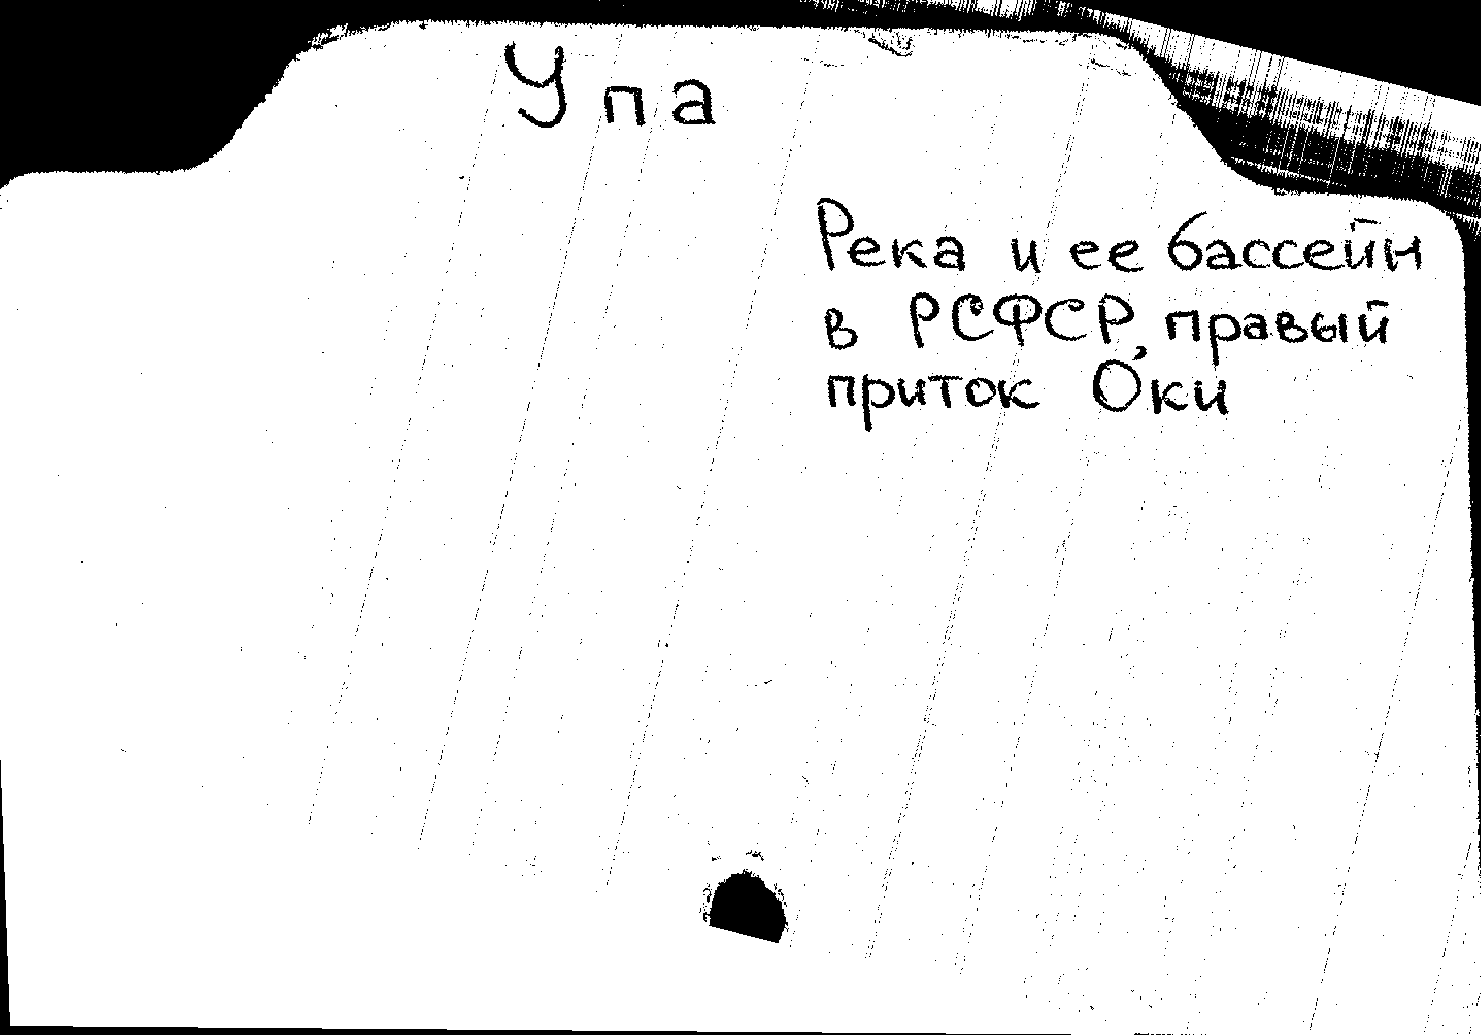 Упа
Река и ее бассейн
в РСФСР, правый
приток Оки